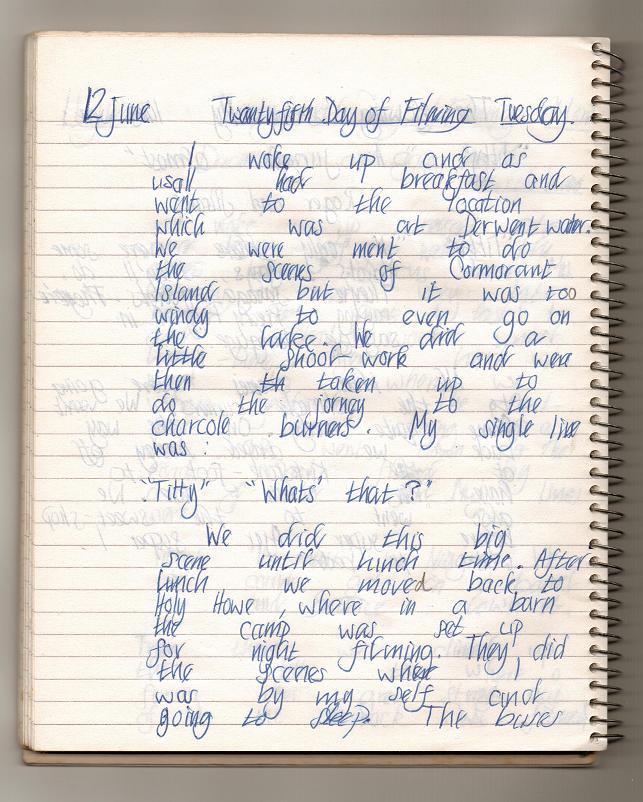 12 June Twentyfifth Day of Filming Tuesday.
I woke up and as
usall had breakfast and
went to the location
which was at Derwent water.
We were ment to do
the scenes of Cormorant
Island but it was too
windy to even go on
the larkee. We did a
little shoot work and were
then th taken up to
do the jorney to the
charcole burners. My single line
was :
"Titty" "Whats' that ?"
We did this big
scene until lunch time. After
lunch we moved back to
Holy Howe, where in a barn
the camp was set up
for night filming. They did
the scenes where I
was by my self and
going to sleep. The buses